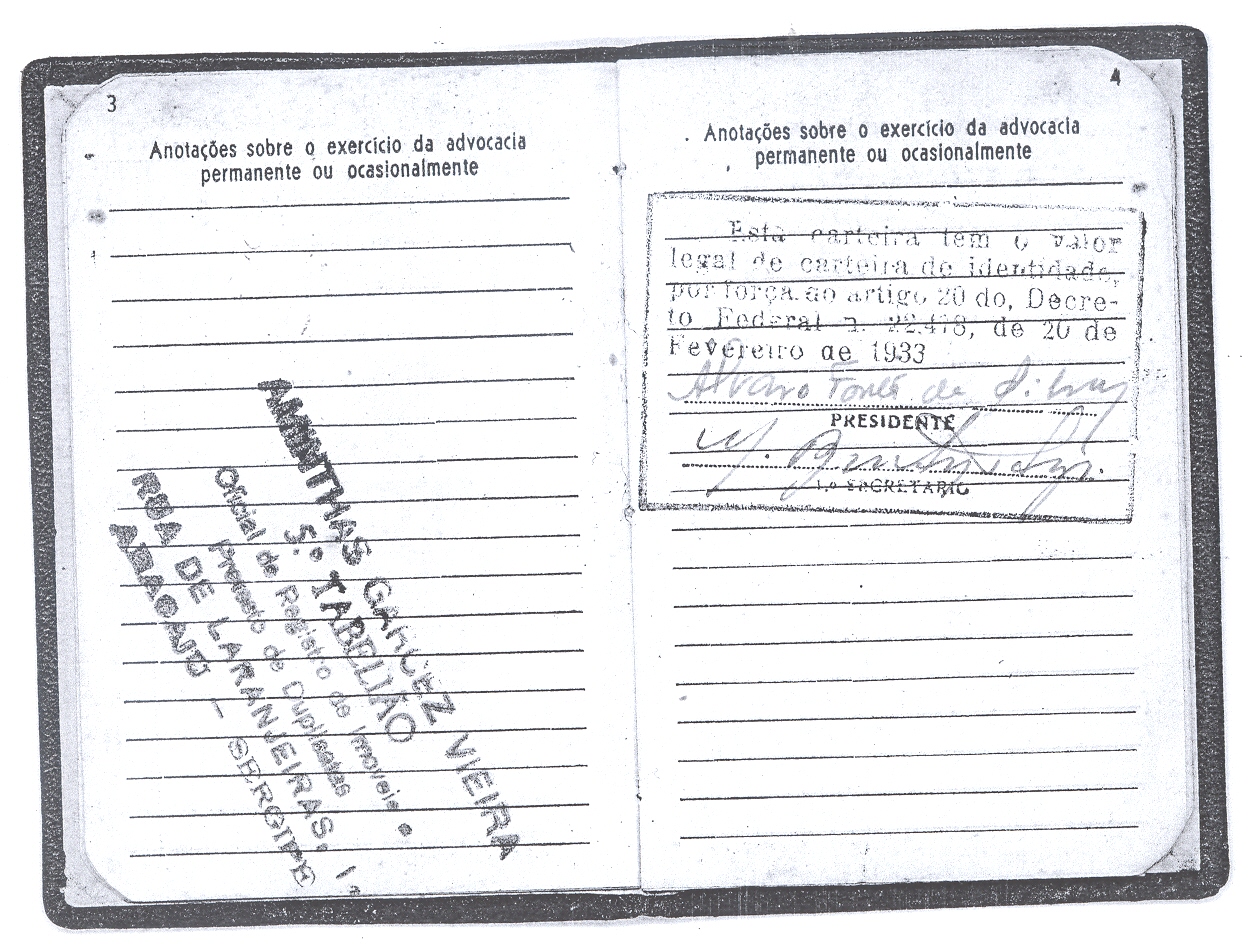 3
Anotações sobre o exercício da advocacia
permanente ou ocasionalmente
AMYNTHAS GARCEZ VIEIRA
5.º TABELIÃO
Oficial do Registro de Imoveis e
Protesto de Duplicatas
RUA DE LARANJEIRAS, 1
ARACAJU — SERGIPE
4
Anotações sobre o exercício da advocacia
permanente ou ocasionalmente
Esta carteira tem o valor
legal de carteira de identidade,
por força do artigo 20 do, Decre-
to Federal n. 22.478, de 20 de
Fevereiro de 1933
Alvaro Fontes da Silva
PRESIDENTE
1.o SECRETARIO